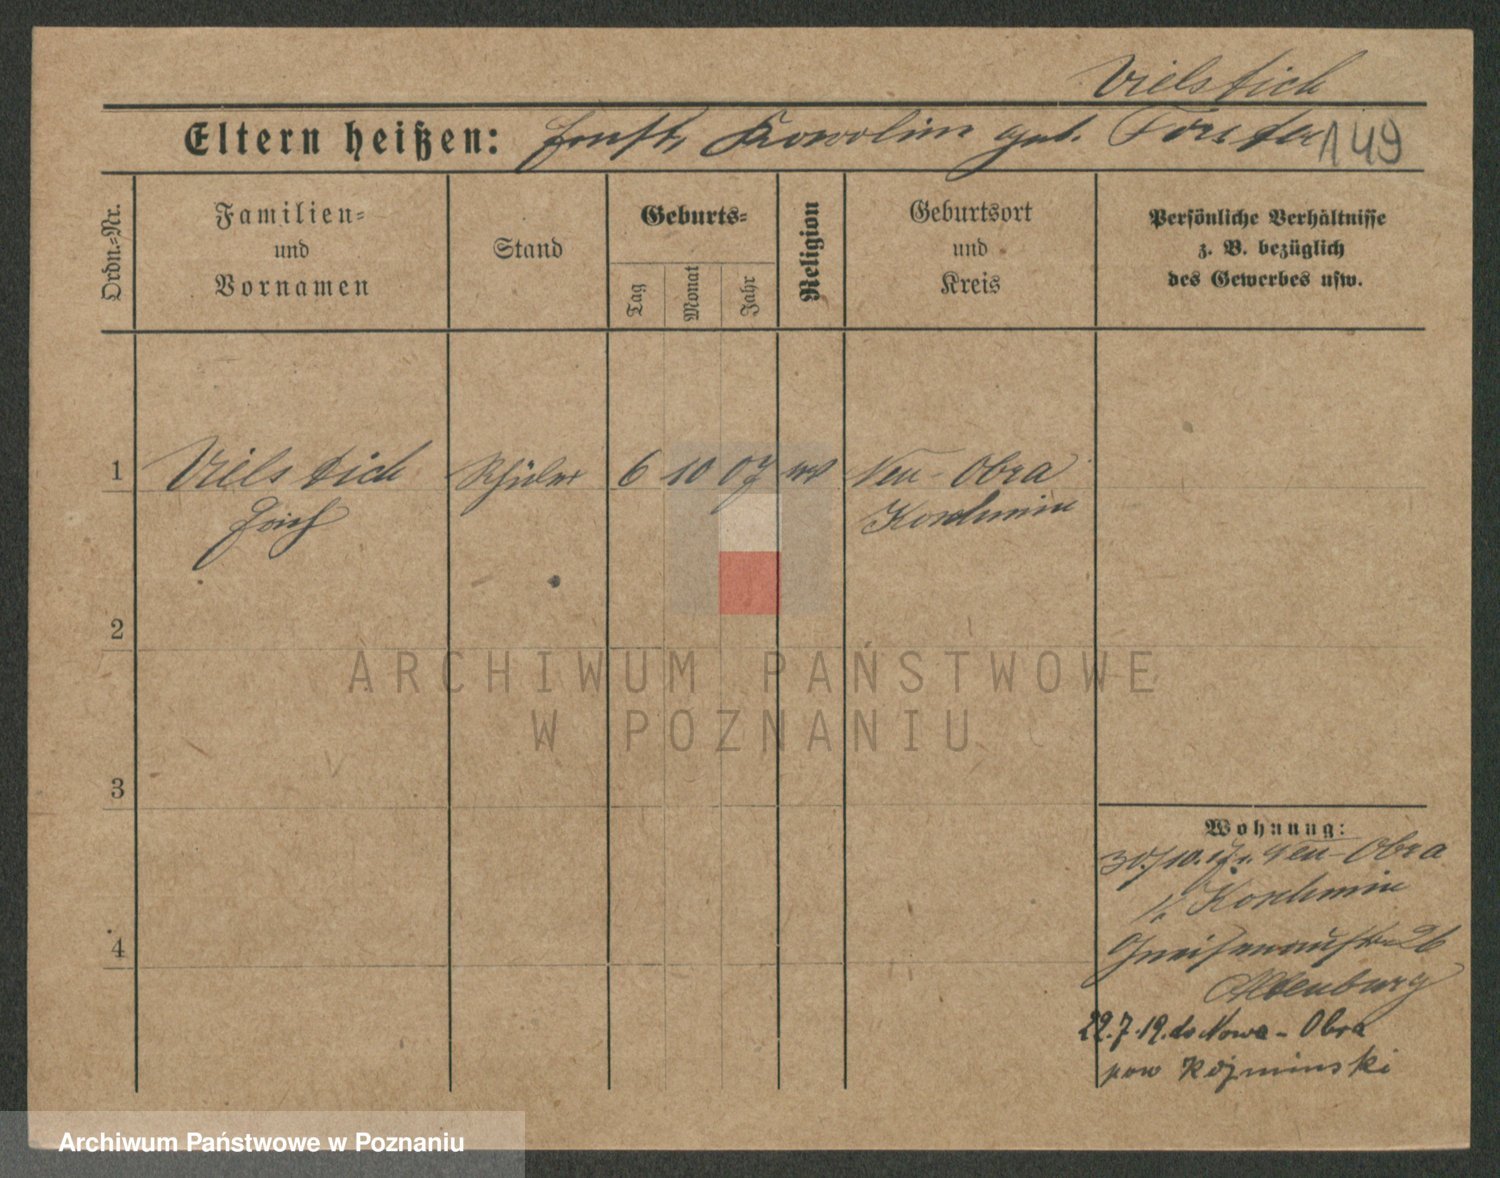 Vielstich
Eltern heißen: Ernst, Karolina geb. Förster 149
Ordn.=Nr.
Familien=
und
Vornamen
Stand
Geburts=
Tag
Monat
Jahr
Religion
Geburtsort
und
Kreis
Persönliche Verhältnisse
z. B. bezüglich
des Gewerbes usw.
1 Vielstich Schüler 6 10 07 ev Neu-Obra
Erich Koschmin
2
3
4
Wohnung:
30/10.17. Neu-Obra
Koschmin
Gneisenaustr. 26
22.7.19. do Nowa-Obra
pow Kozminski
ARCHIWUM PAŃSTWOWE
W POZNANIU
Archiwum Państwowe w Poznaniu